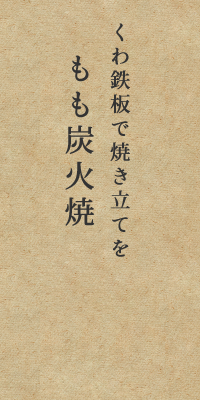 くわ鉄板で焼き立てを
もも炭火焼